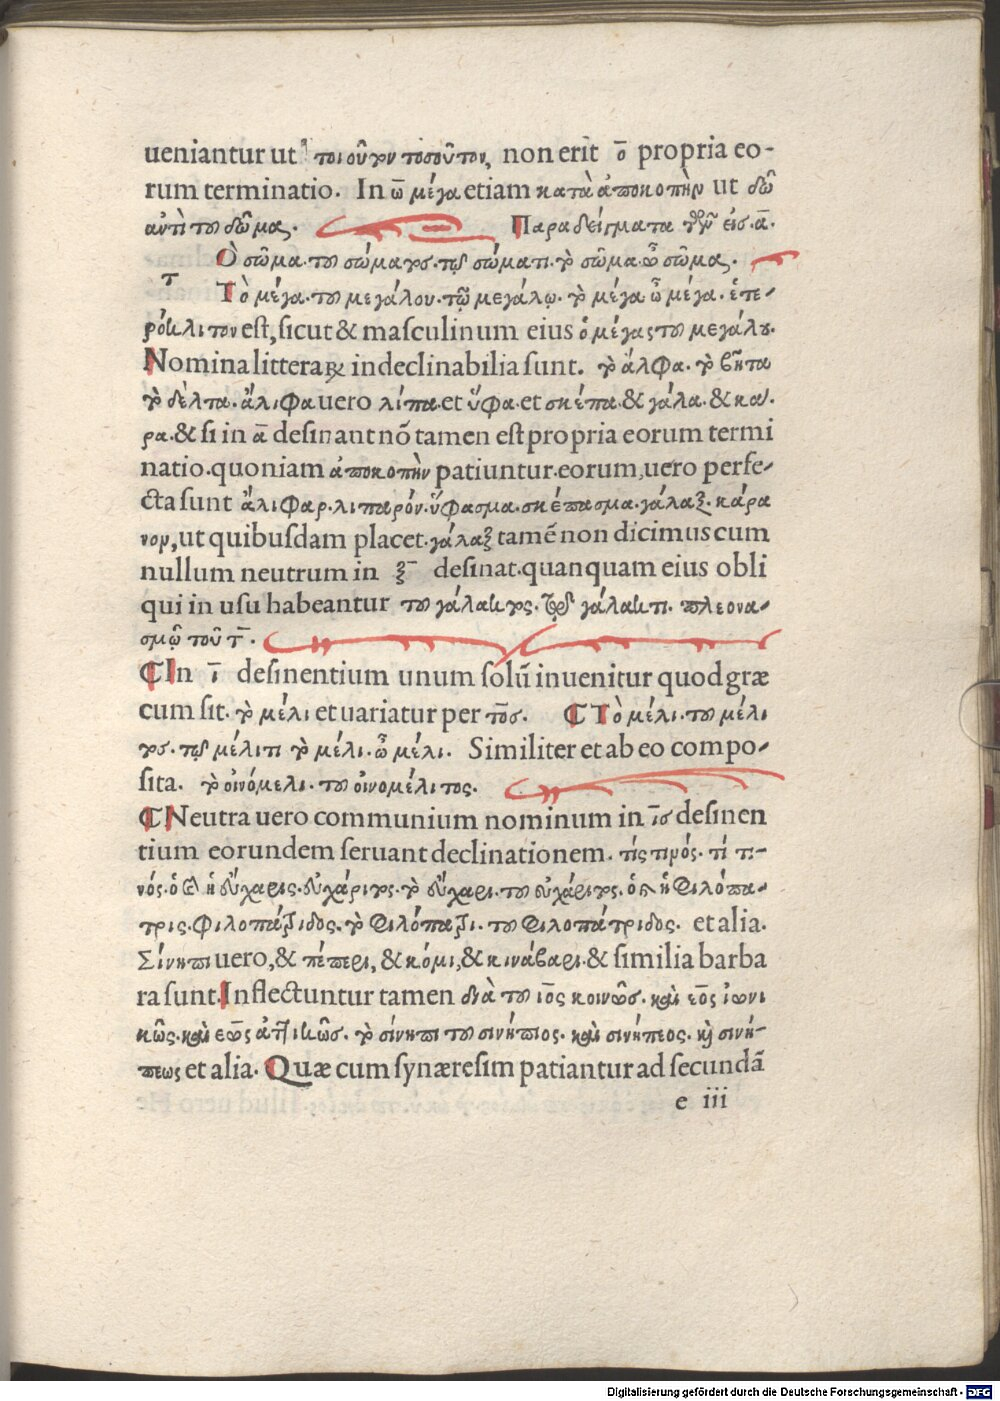 ueniantur ut τοιοῦτον τοσοῦτον, non erit ο̄ propria eo-
rum terminatio. In ω̄ μέγα etiam κατὰ ἀποκοπὴν ut δῶ
ἀντὶ τοῦ δῶμα. Παραδείγματα τῶν εἰσ ᾱ.
Ὸ σῶμα. τοῦ σώματος. τῷ σώματι. τὸ σῶμα. ὦ σῶμα.
τ
Τὸ μέγα. τοῦ μεγάλου. τῷ μεγάλῳ. τὸ μέγα ὦ μέγα. ἑτε-
ρόκλιτον est, sicut & masculinum eius ὁ μέγας τοῦ μεγάλου.
Nomina litteraꝝ indeclinabilia sunt. τὸ ἄλφα. τὸ βῆτα
τὸ δέλτα. ἄλιφα uero λίπα. et ὕφα. et σκέπα. & γάλα. & κα.
ρα. & si in ᾱ desinant nõ tamen est propria eorum termi
natio. quoniam ἀποκοπὴν patiuntur. eorum, uero perfe-
cta sunt ἄλιφαρ. λιπαρόν. ὕφασμα. σκέπασμα. γάλαξ. κάρα
νον, ut quibusdam placet. γάλαξ tamẽ non dicimus cum
nullum neutrum in ξ̄ desinat. quanquam eius obli
qui in usu habeantur τοῦ γάλακτος. τῷ γάλακτι. πλεονα-
σμῷ τοῦ τ̄.
⸿ In ῑ desinentium unum solũ inuenitur quod græ
cum sit. τὸ μέλι et uariatur per τος. ⸿ Τὸ μέλι. τοῦ μέλι
τος. τῷ μέλιτι τὸ μέλι. ὦ μέλι. Similiter et ab eo compo-
sita. τὸ οἰνόμελι. τοῦ οἰνομέλιτος.
⸿ Neutra uero communium nominum in ῑσ desinen
tium eorundem seruant declinationem. τίς τινός. τί τι-
νός. ὁ καὶ ἡ εὔχαρις. εὐχάριτος. τὸ εὔχαρι. τοῦ εὐχάριτος. ὁ καὶ ἡ φιλόπα-
τρις. φιλοπάτριδος. τὸ φιλόπατρι. τοῦ φιλοπάτριδος. et alia.
Σίνηπι uero, & πέπερι, & κόμι, & κινάβαρι. & similia barba
ra sunt. Inflectuntur tamen διὰ τοῦ ιος κοινῶς. καὶ εος ἰωνι
κῶς. καὶ εως ἀττικῶσ. τὸ σίνηπι τοῦ σινήπιος. καὶ σινήπεος. καὶ σινή-
πεως et alia. Quæ cum synæresim patiantur ad secundã
e iii
Digitalisierung gefördert durch die Deutsche Forschungsgemeinschaft - DFG